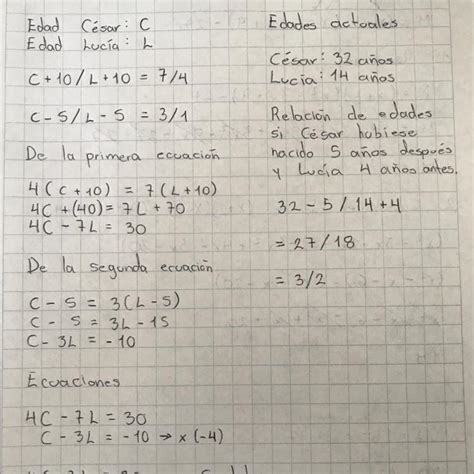 Edad César: C
Edad Lucía: L
C+10/L+10 = 7/4
C-5/L-5 = 3/1
De la primera ecuación
4(C+10) = 7(L+10)
4C+(40) = 7L+70
4C-7L = 30
De la segunda ecuación
C-5 = 3(L-5)
C-5 = 3L-15
C-3L = -10
Ecuaciones
4C-7L = 30
C-3L = -10 → x(-4)
Edades actuales
César: 32 años
Lucía: 14 años
Relación de edades
si César hubiese
nacido 5 años después
y Lucía 4 años antes.
32-5/14+4
= 27/18
= 3/2